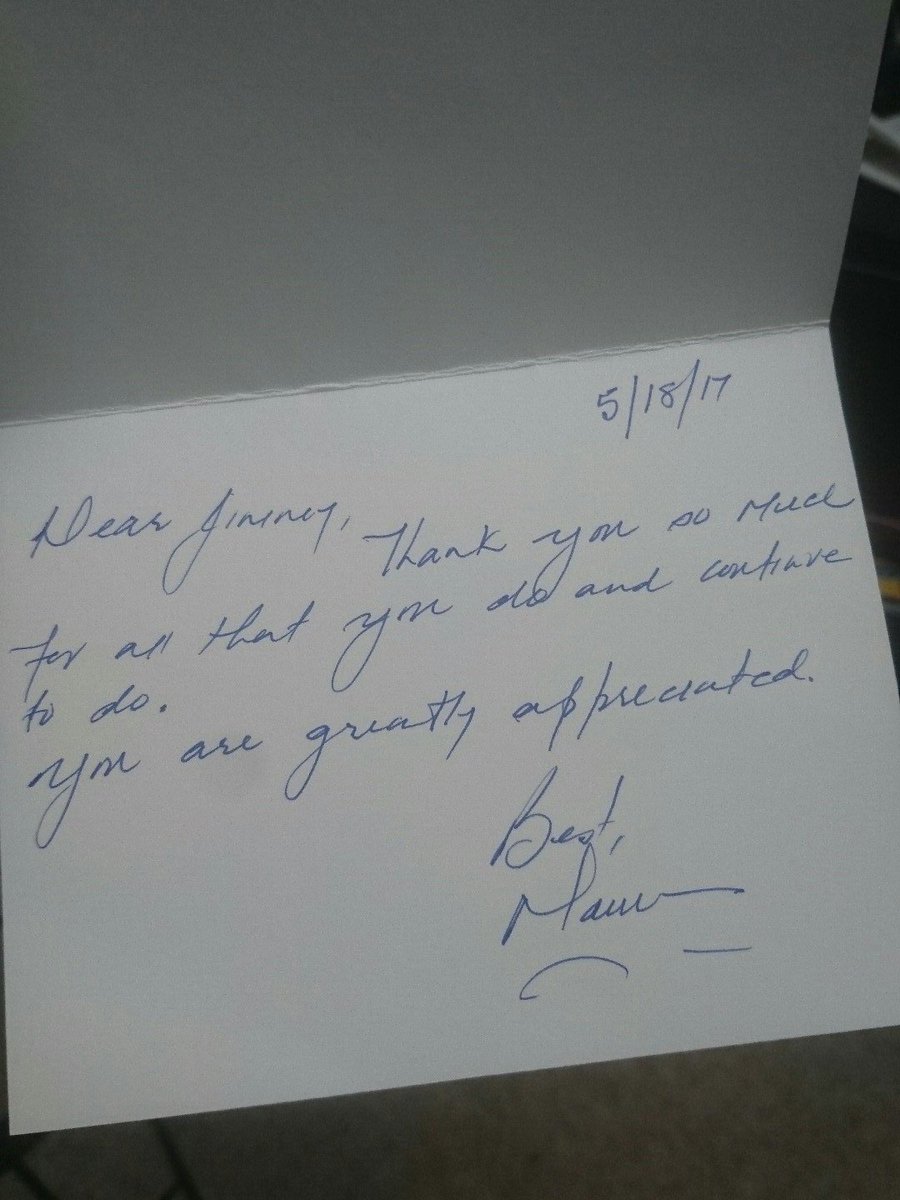 5/18/17
Dear Jimmy,
Thank you so much
for all that you do and continue
to do.
You are greatly appreciated.
Best,